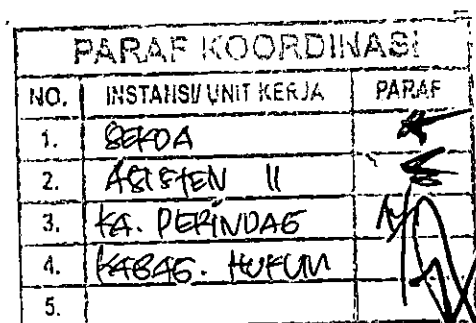 PARAF KOORDINASI
NO. INSTANSI/ UNIT KERJA PARAF
1. SEKDA
2. ASISTEN II
3. KA. PERINDAG
4. KABAG. HUKUM
5.